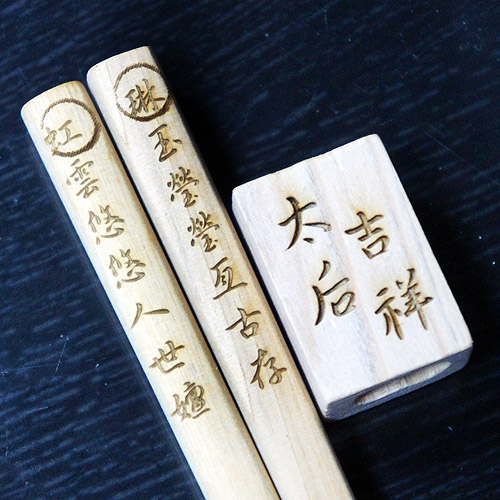 虹雲悠悠人世嬗
琳玉瑩瑩亙古存
太后
吉祥